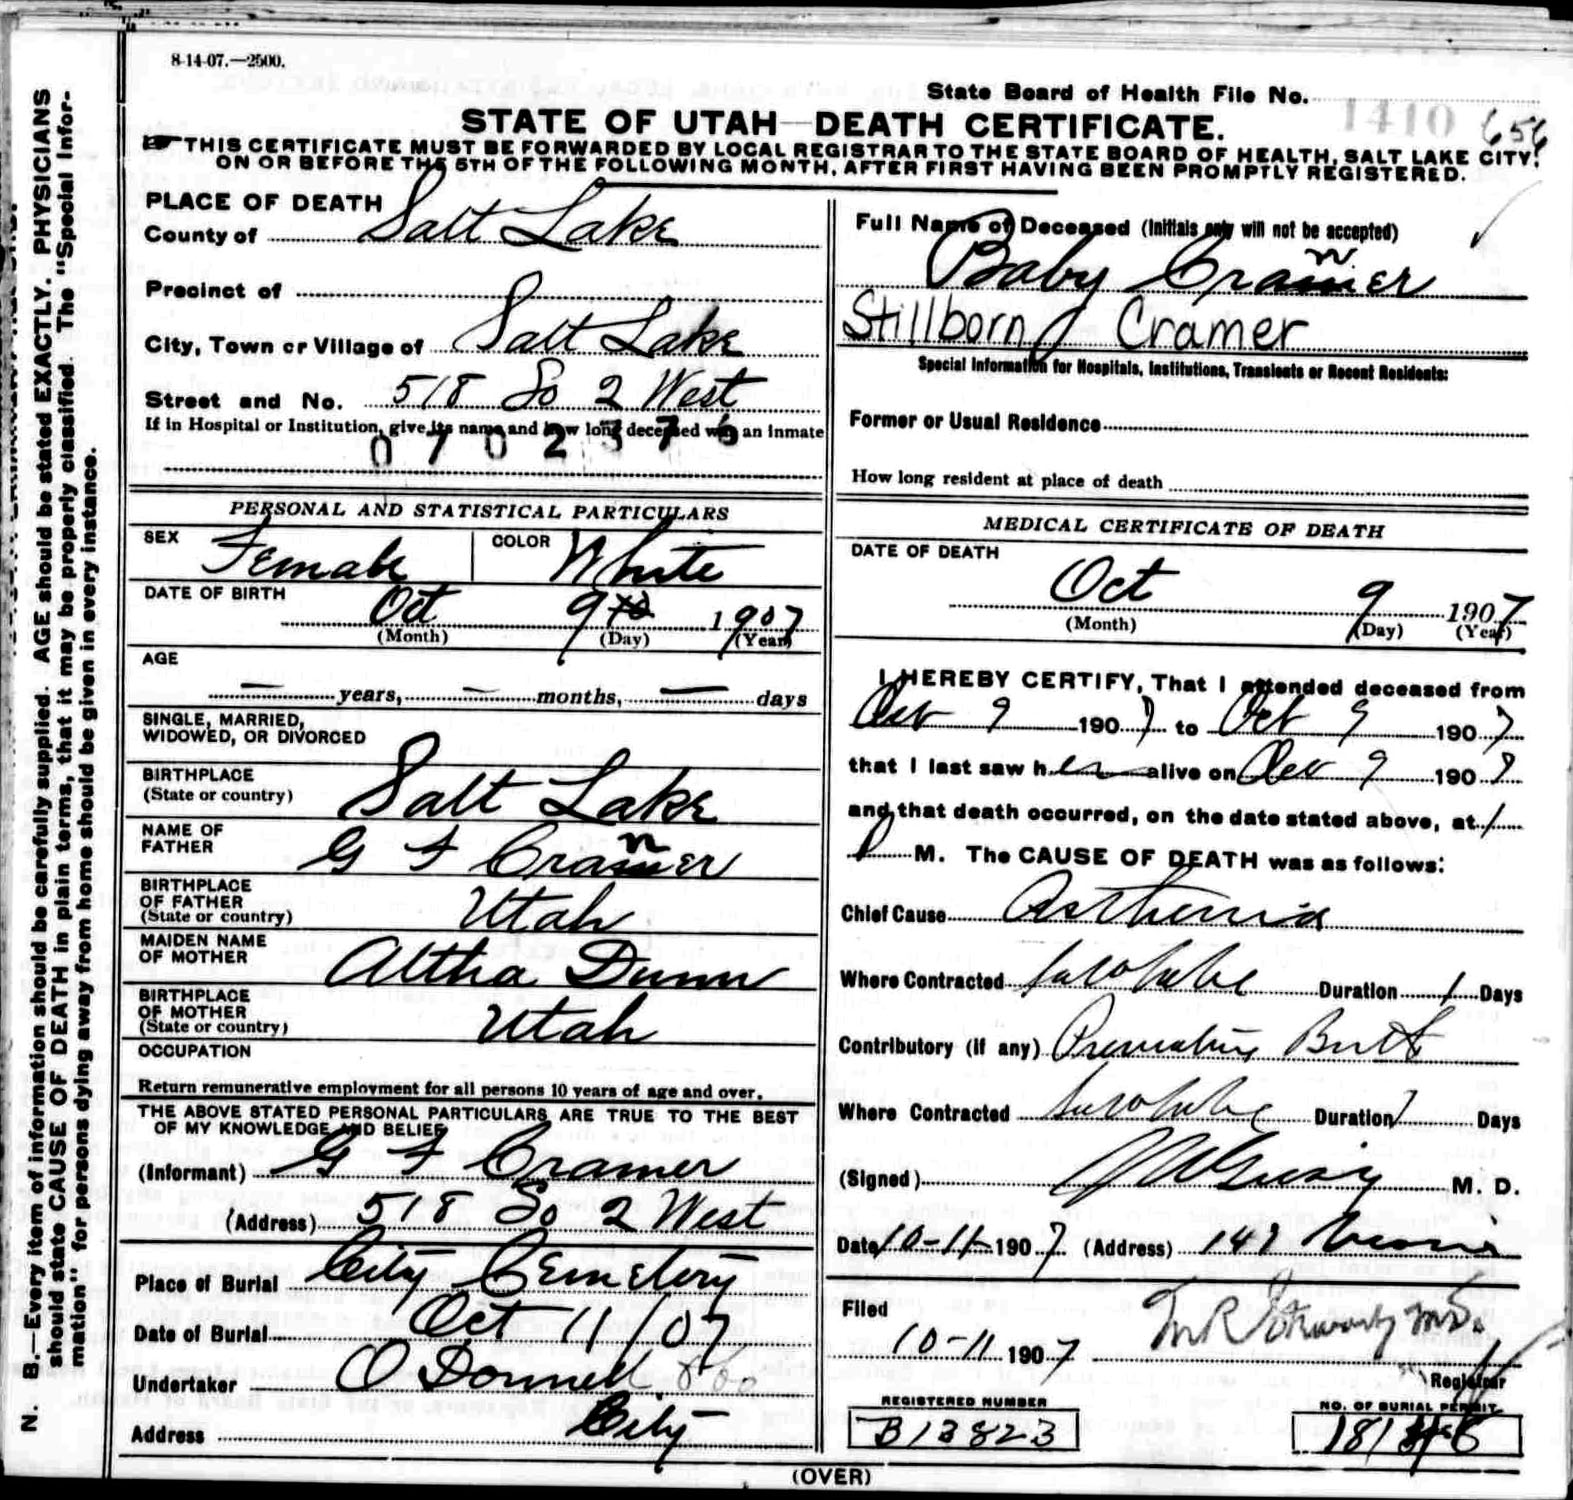 8-14-07.—2500.
State Board of Health File No. 1410 656
STATE OF UTAH—DEATH CERTIFICATE.
☞ THIS CERTIFICATE MUST BE FORWARDED BY LOCAL REGISTRAR TO THE STATE BOARD OF HEALTH, SALT LAKE CITY,
ON OR BEFORE THE 5TH OF THE FOLLOWING MONTH, AFTER FIRST HAVING BEEN PROMPTLY REGISTERED.
N. B.—Every item of information should be carefully supplied. AGE should be stated EXACTLY. PHYSICIANS
should state CAUSE OF DEATH in plain terms, that it may be properly classified. The "Special Infor-
mation" for persons dying away from home should be given in every instance.
PLACE OF DEATH
County of Salt Lake
Precinct of
City, Town or Village of Salt Lake
Street and No. 518 So 2 West
If in Hospital or Institution, give its name and how long deceased was an inmate
0702376
PERSONAL AND STATISTICAL PARTICULARS
SEX Female COLOR White
DATE OF BIRTH Oct 9 1907
(Month) (Day) (Year)
AGE
— years, — months, — days
SINGLE, MARRIED,
WIDOWED, OR DIVORCED
BIRTHPLACE
(State or country) Salt Lake
NAME OF
FATHER G F Cramer
BIRTHPLACE
OF FATHER
(State or country) Utah
MAIDEN NAME
OF MOTHER Altha Dunn
BIRTHPLACE
OF MOTHER
(State or country) Utah
OCCUPATION
Return remunerative employment for all persons 10 years of age and over.
THE ABOVE STATED PERSONAL PARTICULARS ARE TRUE TO THE BEST
OF MY KNOWLEDGE AND BELIEF
(Informant) G F Cramer
(Address) 518 So 2 West
Place of Burial City Cemetery
Date of Burial Oct 11/07
Undertaker O Donnell
Address City
Full Name of Deceased (Initials only will not be accepted)
Baby Cramer
Stillborn Cramer
Special Information for Hospitals, Institutions, Transients or Recent Residents:
Former or Usual Residence
How long resident at place of death
MEDICAL CERTIFICATE OF DEATH
DATE OF DEATH
Oct 9 1907
(Month) (Day) (Year)
I HEREBY CERTIFY, That I attended deceased from
Oct 9 1907 to Oct 9 1907
that I last saw her alive on Oct 9 1907
and that death occurred, on the date stated above, at 1
P M. The CAUSE OF DEATH was as follows:
Chief Cause Asthenia
Where Contracted Salt Lake Duration 1 Days
Contributory (if any) Premature Birth
Where Contracted Salt Lake Duration Days
(Signed) M. D.
Date 10-11- 1907 (Address) 147
Filed
10-11 1907
Registrar
REGISTERED NUMBER
B13823
NO. OF BURIAL PERMIT
(OVER)